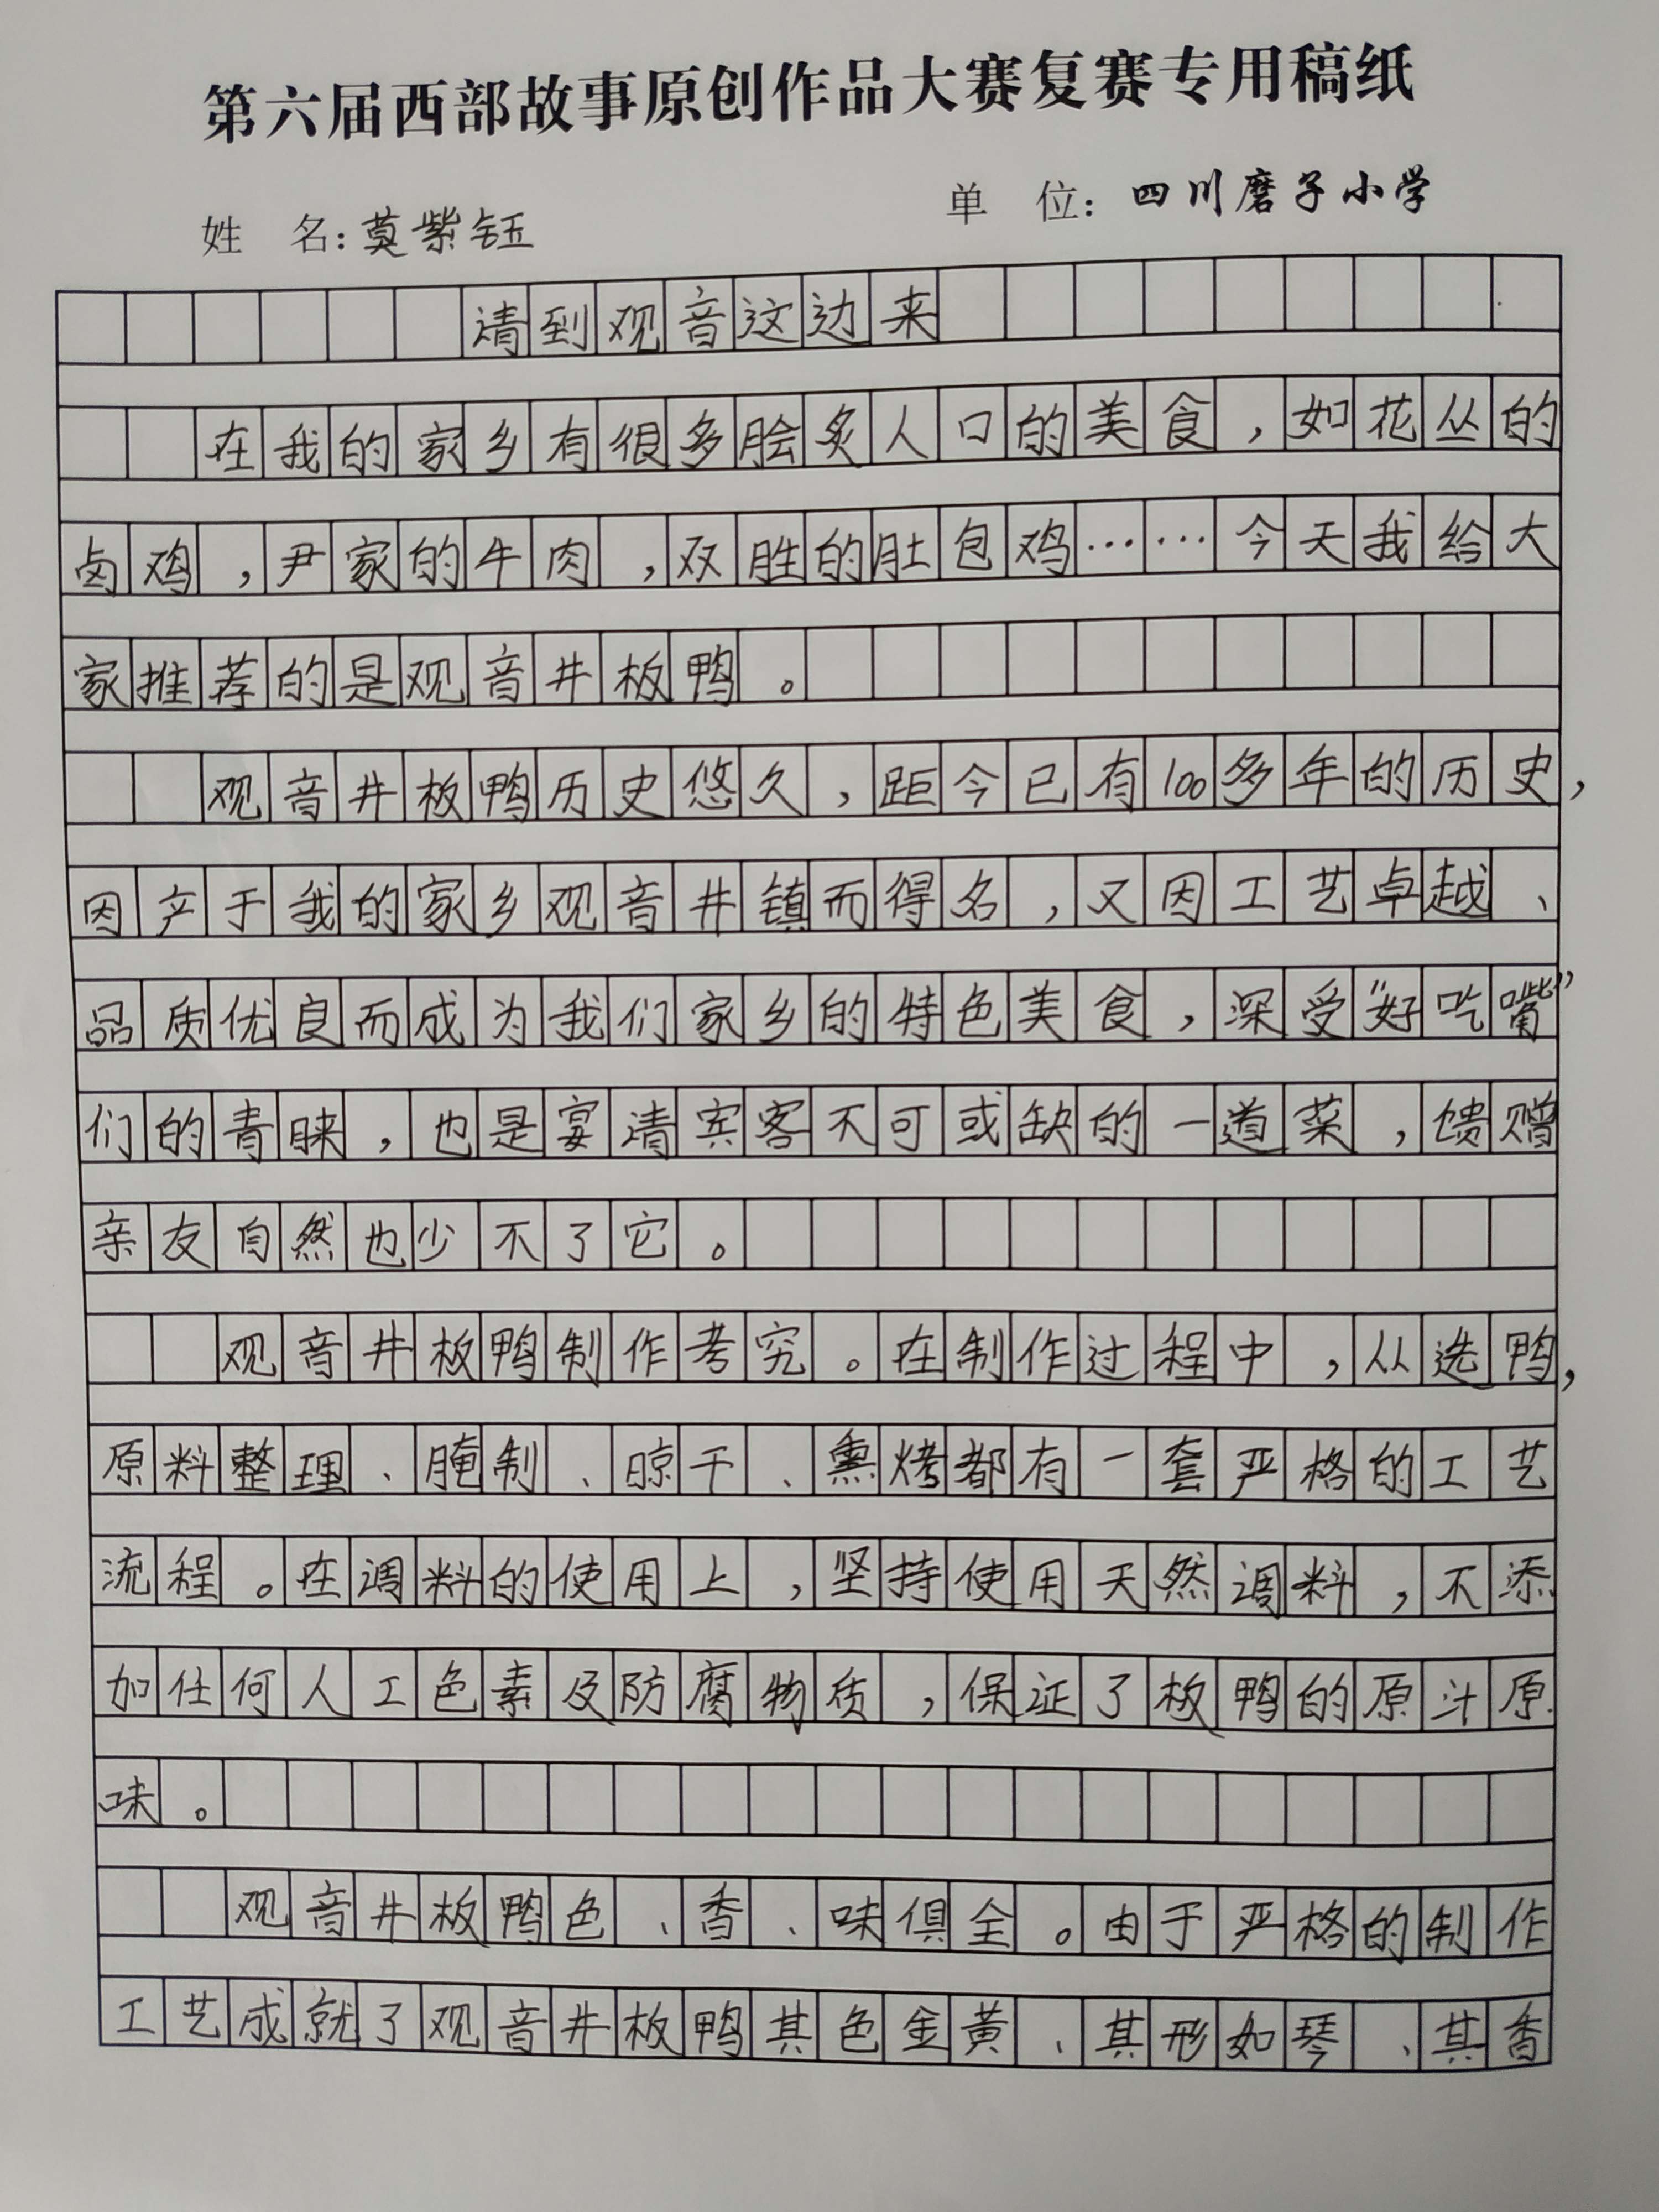 第六届西部故事原创作品大赛复赛专用稿纸
姓 名：莫紫钰 单 位：四川磨子小学
请到观音这边来
在我的家乡有很多脍炙人口的美食，如花丛的
卤鸡，尹家的牛肉，双胜的肚包鸡……今天我给大
家推荐的是观音井板鸭。
观音井板鸭历史悠久，距今已有100多年的历史，
因产于我的家乡观音井镇而得名，又因工艺卓越、
品质优良而成为我们家乡的特色美食，深受“好吃嘴”
们的青睐，也是宴请宾客不可或缺的一道菜，馈赠
亲友自然也少不了它。
观音井板鸭制作考究。在制作过程中，从选鸭，
原料整理、腌制、晾干、熏烤都有一套严格的工艺
流程。在调料的使用上，坚持使用天然调料，不添
加任何人工色素及防腐物质，保证了板鸭的原汁原
味。
观音井板鸭色、香、味俱全。由于严格的制作
工艺成就了观音井板鸭其色金黄、其形如琴、其香